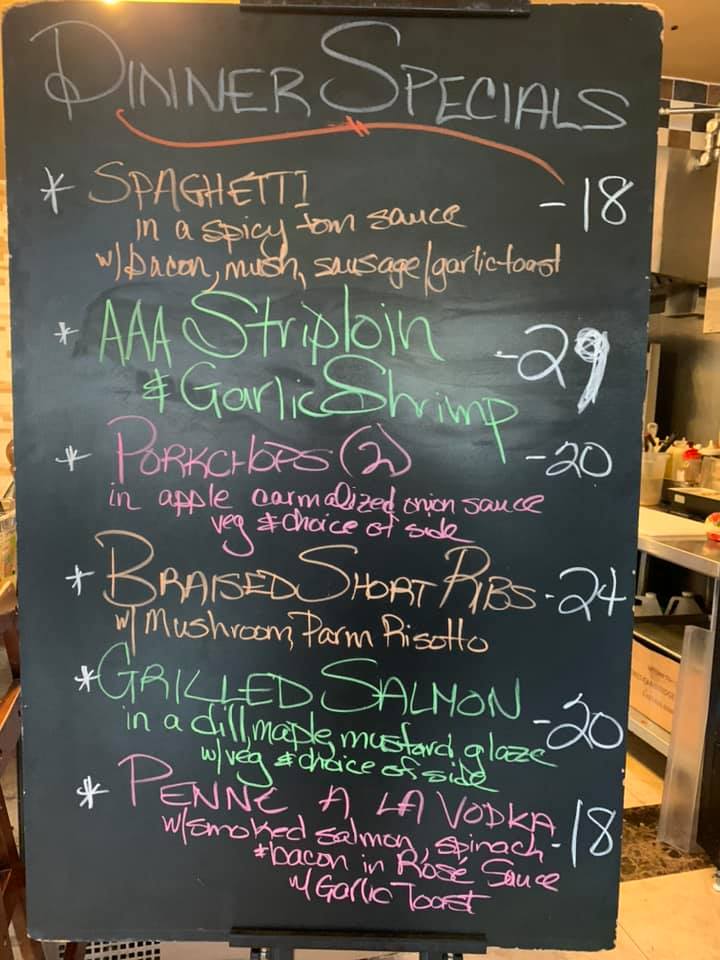 DINNER SPECIALS
* SPAGHETTI -18
in a spicy tom sauce
w/bacon, mush, sausage/garlic toast
* AAA Striploin -29
& Garlic Shrimp
* PORKCHOPS (2) -20
in apple carmalized onion sauce
veg & choice of side
* BRAISED SHORT RIBS -24
w/ Mushroom, Parm Risotto
* GRILLED SALMON -20
in a dill, maple, mustard glaze
w/veg & choice of side
* PENNE A LA VODKA -18
w/smoked salmon, spinach
& bacon in Rosé Sauce
w/ Garlic Toast